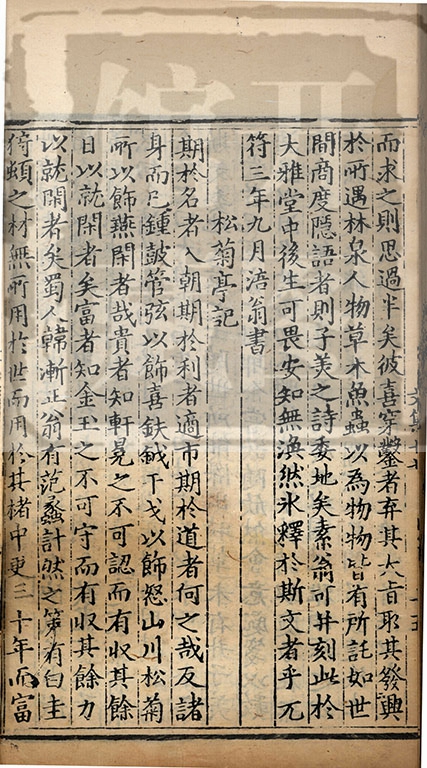 而求之則思過半矣彼喜穿鑿者弃其大旨取其發興
於所遇林泉人物草木魚蟲以爲物物皆有所託如世
間商度隱語者則子美之詩委地矣素翁可并刻此於
大雅堂中後生可畏安知無渙然冰釋於斯文者乎元
符三年九月涪翁書
松菊亭記
期於名者入朝期於利者適市期於道者何之哉反諸
身而已鍾鼓管弦以飾喜鈇鉞干戈以飾怒山川松菊
所以飾燕閑者哉貴者知軒冕之不可認而有收其餘
日以就閑者矣富者知金玉之不可守而有收其餘力
以就閑者矣蜀人韓漸正翁有范蠡計然之策有白圭
猗頓之材無所用於世而用於其楮中更三十年而富